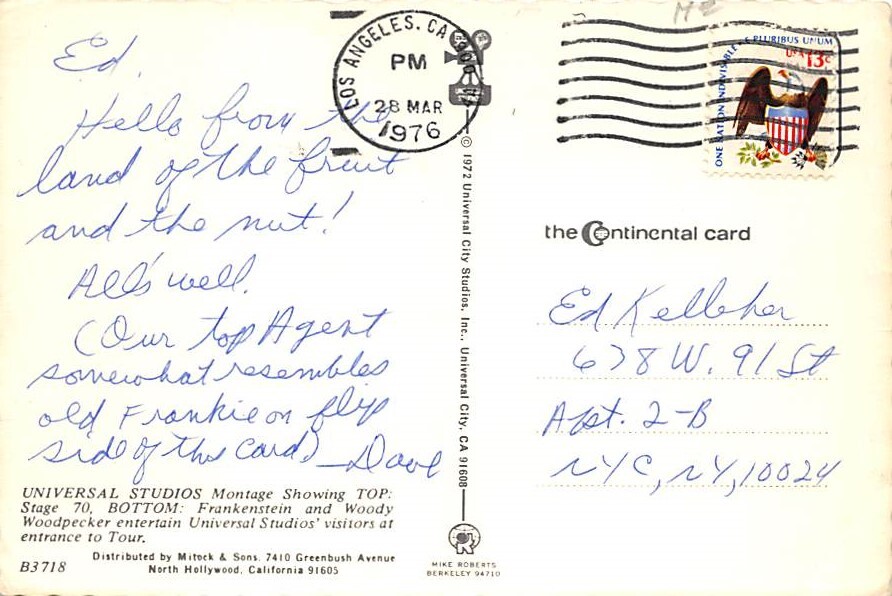 Ed,
Hello from the
land of the fruit
and the nut!
All's well.
(Our top Agent
somewhat resembles
old Frankie on flip
side of this card)
—Dave
UNIVERSAL STUDIOS Montage Showing TOP:
Stage 70, BOTTOM: Frankenstein and Woody
Woodpecker entertain Universal Studios' visitors at
entrance to Tour.
B3718
Distributed by Mitock & Sons. 7410 Greenbush Avenue
North Hollywood, California 91605
LOS ANGELES, CA
PM
28 MAR
1976
© 1972 Universal City Studios, Inc., Universal City, CA 91608
MIKE ROBERTS
BERKELEY 94710
ONE NATION INDIVISIBLE E PLURIBUS UNUM
USA 13c
the Continental card
Ed Kelleher
638 W. 91 St
Apt. 2-B
NYC, NY, 10024